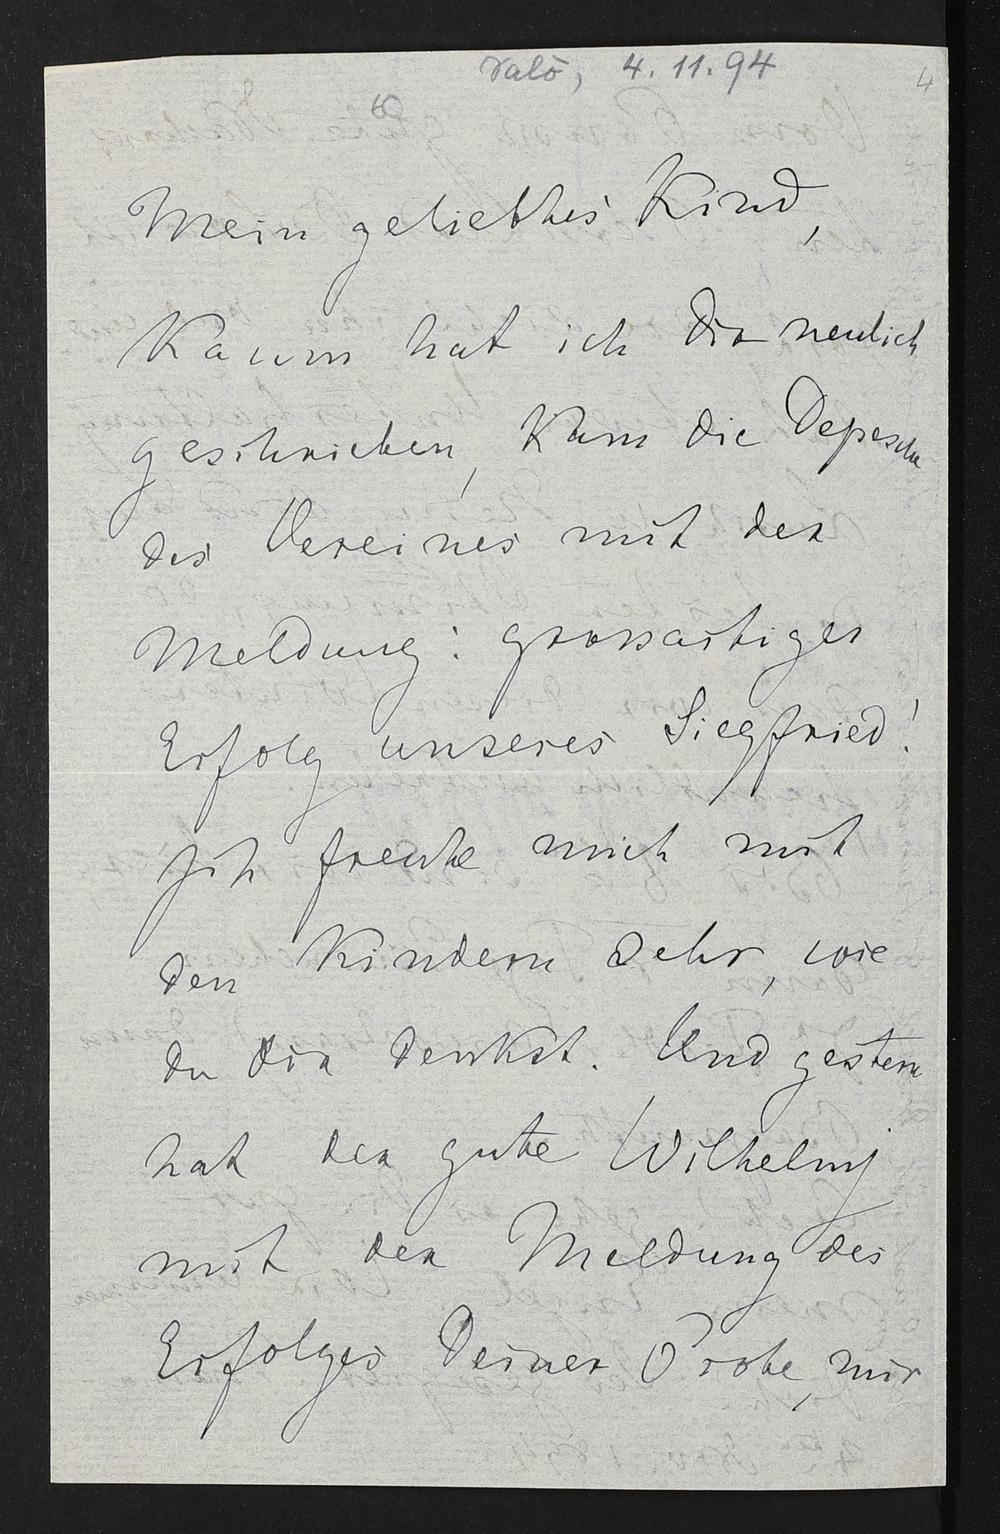 Valō, 4.11.94
4
Mein geliebthes Kind,
Kaum hat ich dir neulich
geschrieben, kam die Depesche
des Vereines mit der
Meldung: grossartiger
Erfolg unseres Siegfried!
Ich freute mich mit
den Kindern sehr, wie
du dir denkst. Und gestern
hat der gute Wilhelmj
mit der Meldung des
Erfolges Deiner Probe, mir